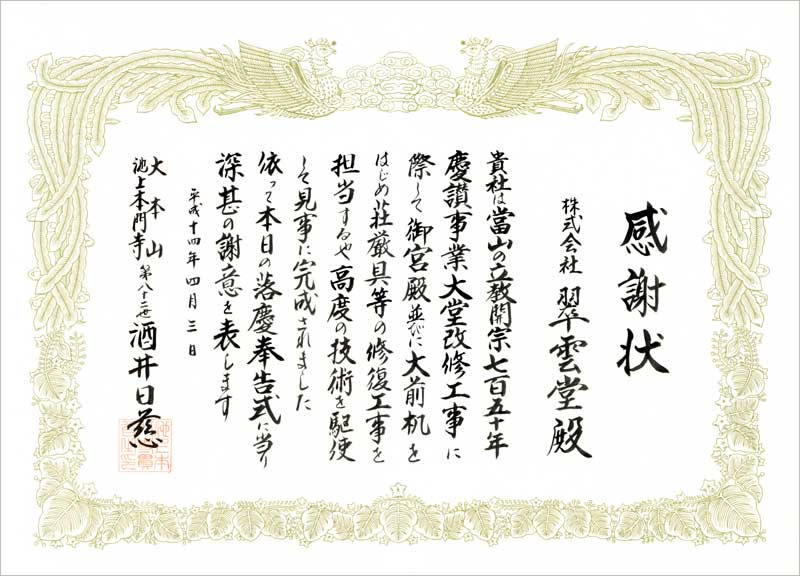 感謝状
株式会社 翠雲堂殿
貴社は當山の立教開宗七百五十年
慶讃事業大堂改修工事に
際して御宮殿並びに大前机を
はじめ荘厳具等の修復工事を
担当するや高度の技術を駆使
して見事に完成されました
依って本日の落慶奉告式に当り
深甚の謝意を表します
平成十四年四月三日
大本山
池上本門寺 第八十二世 酒井日慈